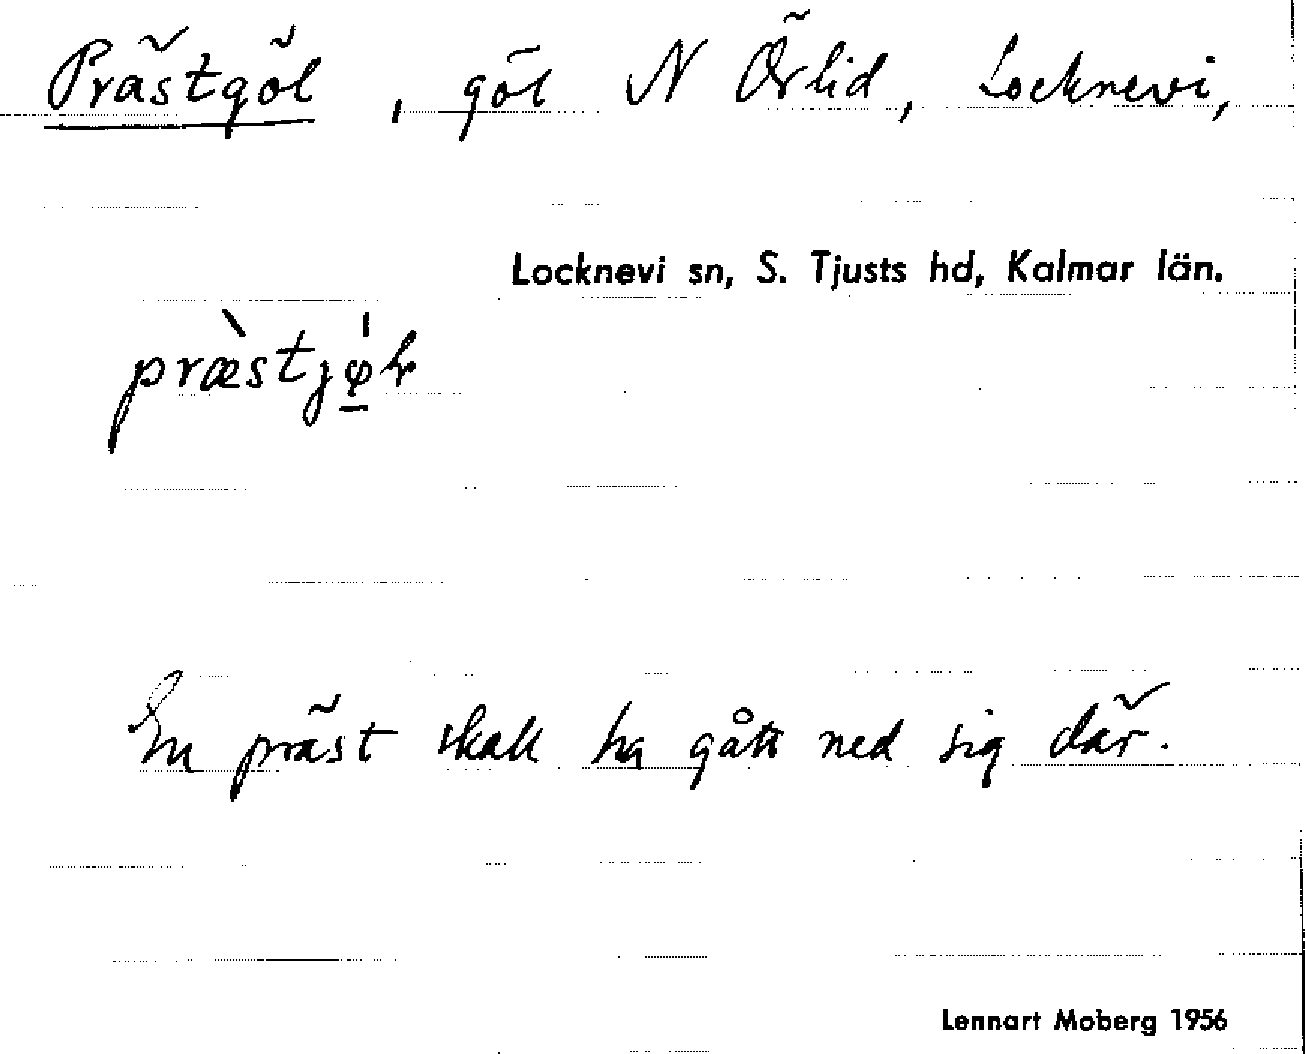 Prästgöl, göl N Örlid, Locknevi,
Locknevi sn, S. Tjusts hd, Kalmar län.
En präst skall ha gått ned sig där.
Lennart Moberg 1956